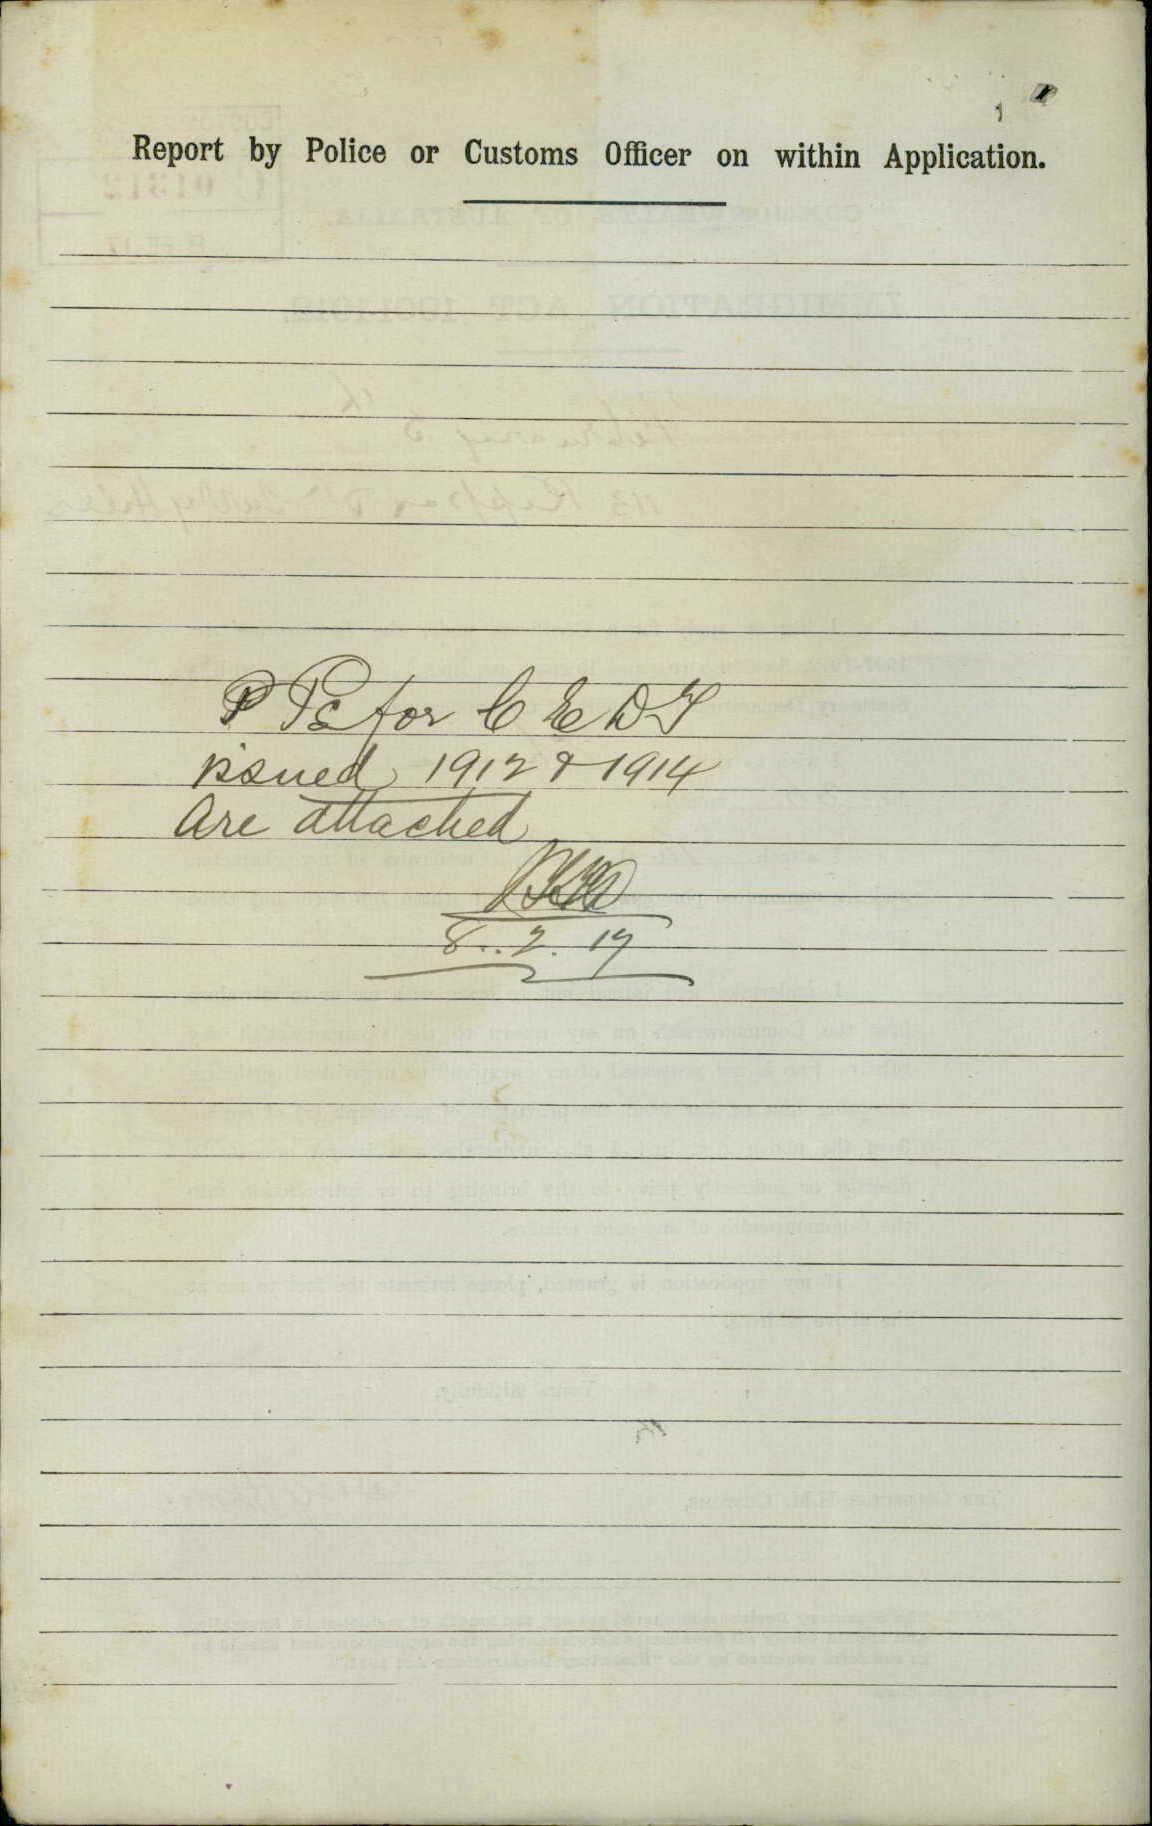 Report by Police or Customs Officer on within Application.
P Ps for C E D T
issued 1912 & 1914
are attached
8.. 2. 17